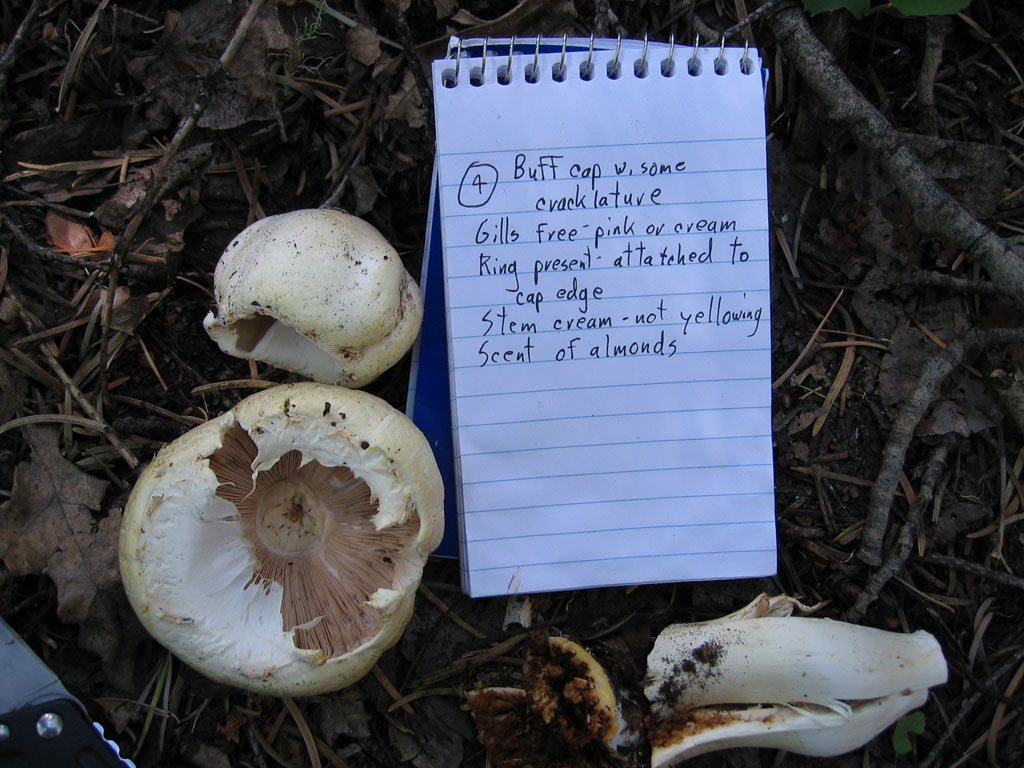 4 Buff cap w. some
cracklature
Gills free - pink or cream
Ring present - attatched to
cap edge
Stem cream - not yellowing
Scent of almonds